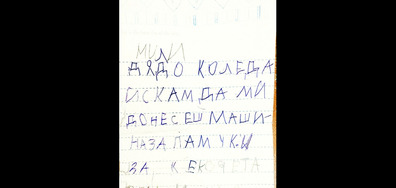 МИЛИ
ДЯДО КОЛЕДА
ИСКАМ ДА МИ
ДОНЕСЕШ МАШИ-
НА ЗА ПАМУКИ
ЗА КЕКЧЕТА